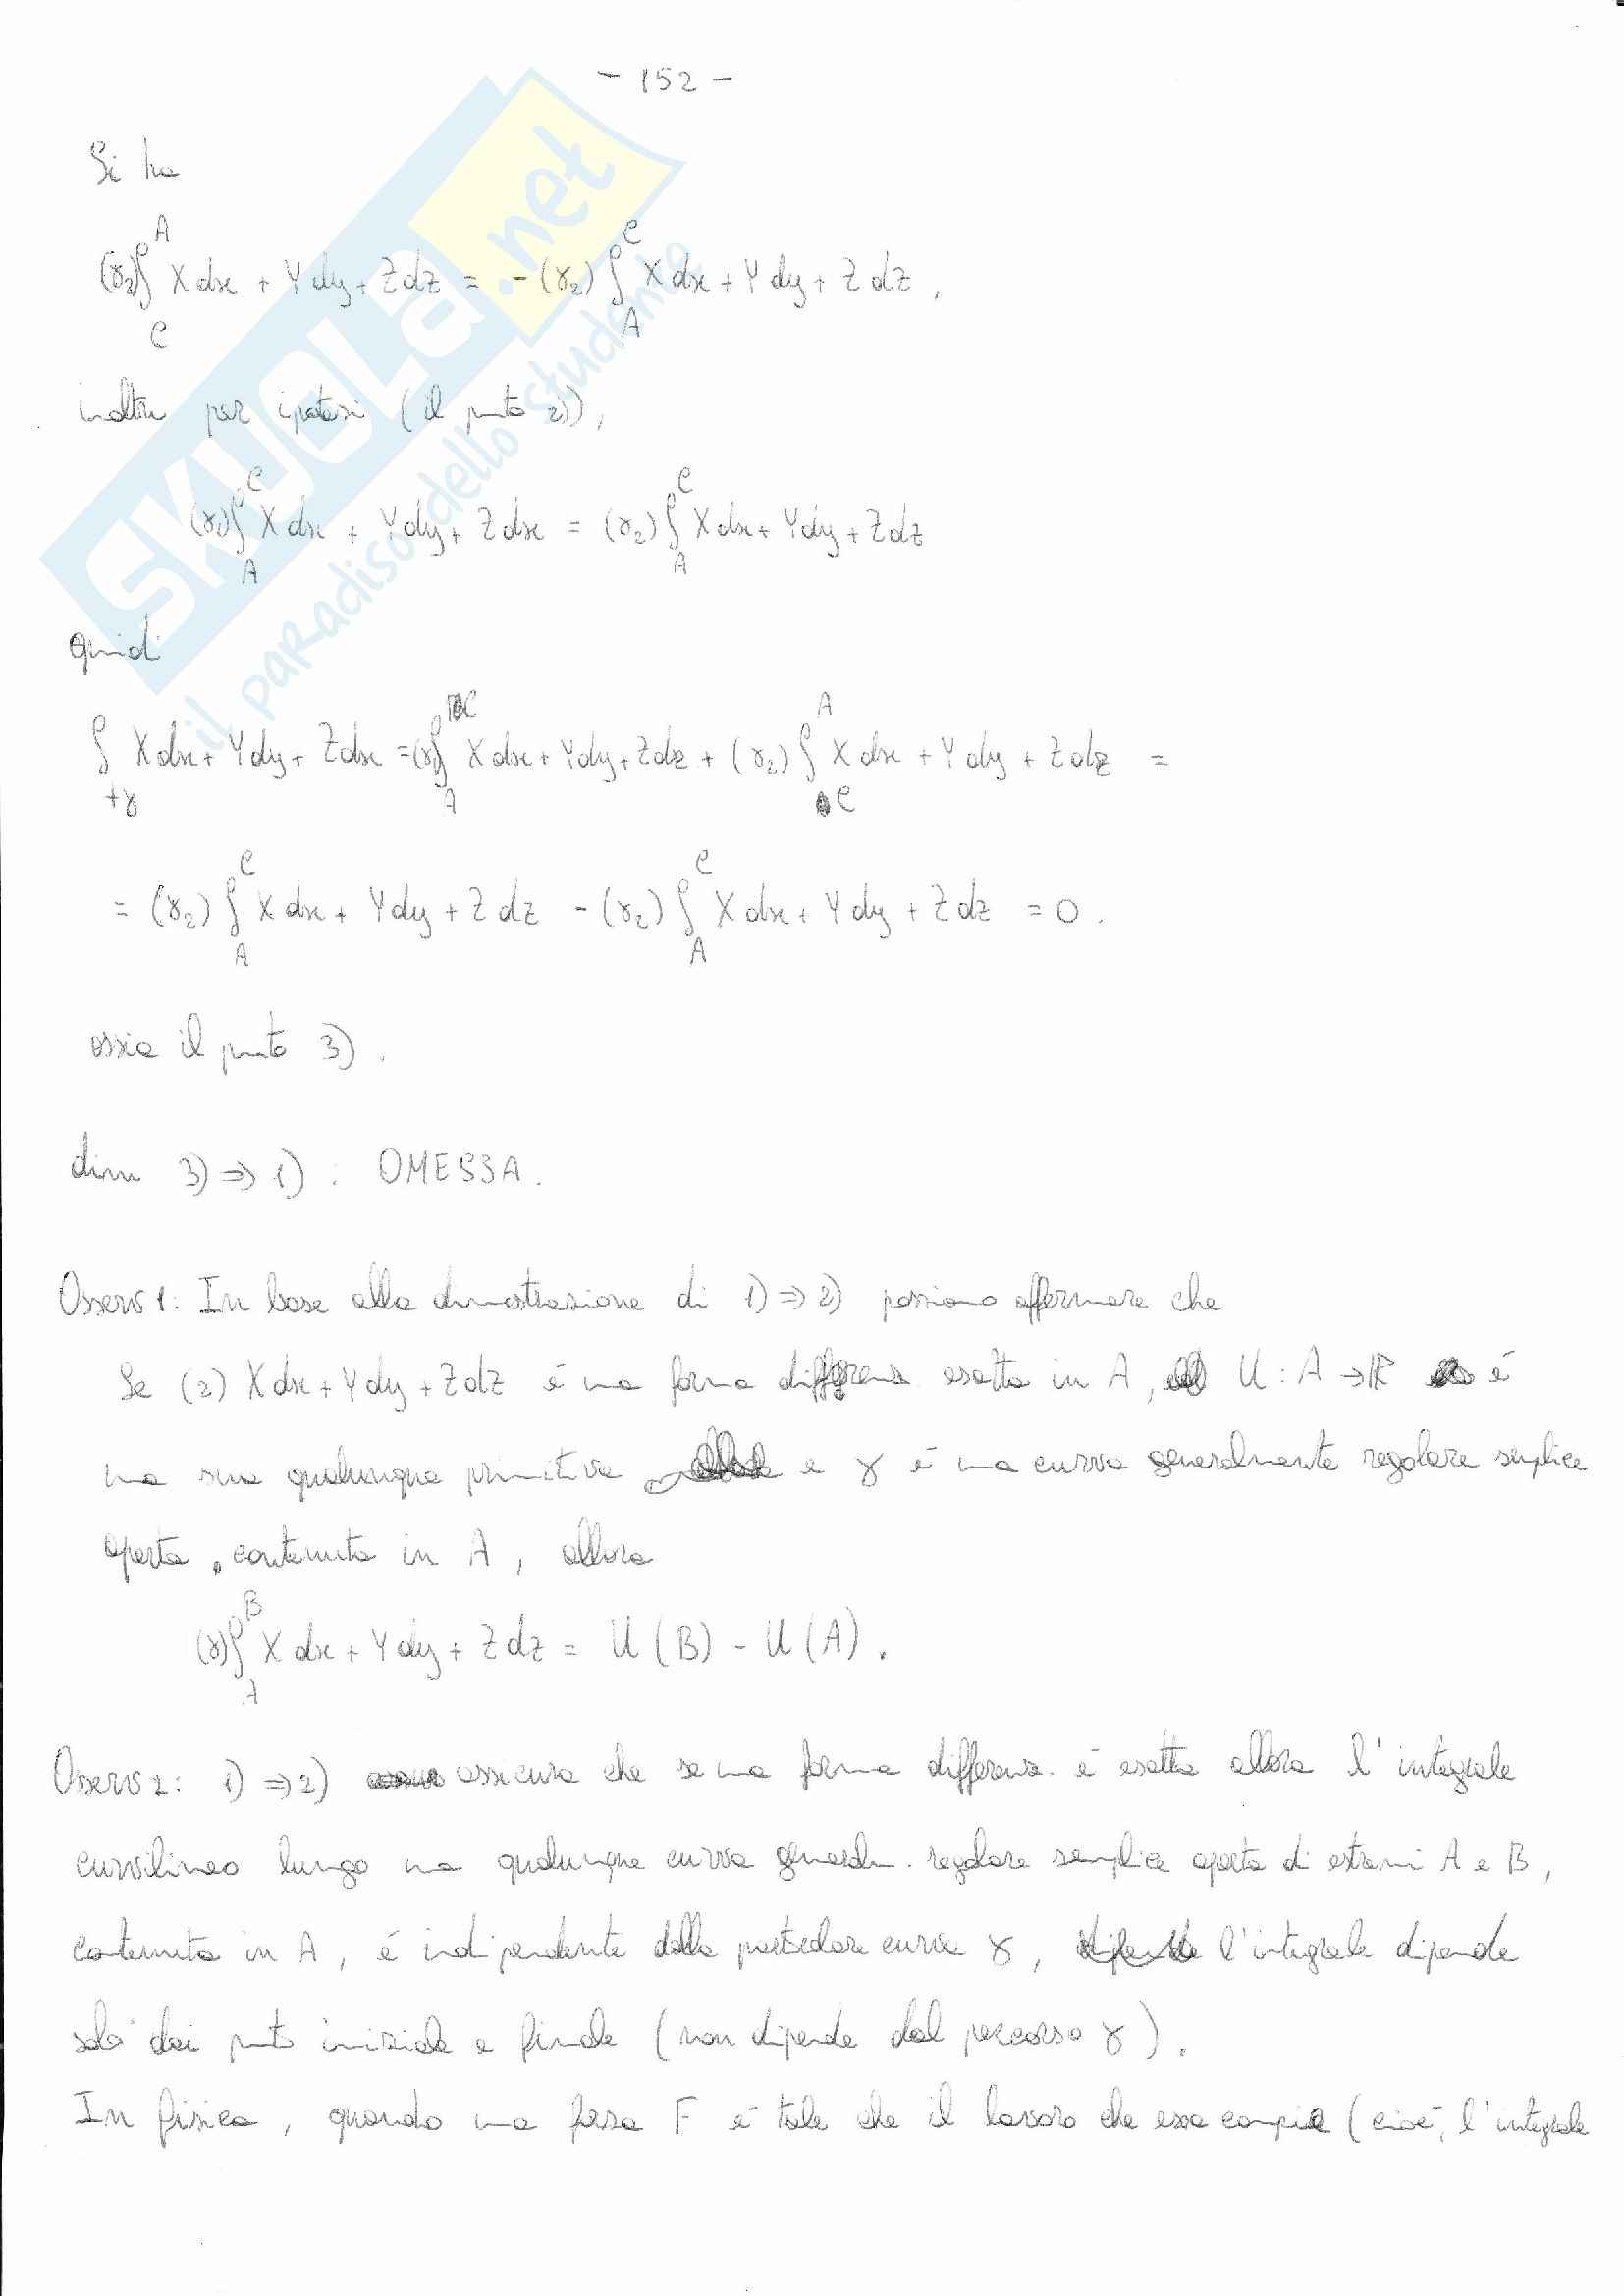 - 152 -
Si ha
(γ₂)∫_C^A X dx + Y dy + Z dz = - (γ₂) ∫_A^C X dx + Y dy + Z dz ,
inoltre per ipotesi (il punto 2)),
(γ₁)∫_A^C X dx + Y dy + Z dx = (γ₂) ∫_A^C X dx + Y dy + Z dz
quindi
∫_{+γ} X dx + Y dy + Z dx = (γ₁)∫_A^C X dx + Y dy + Z dz + (γ₂) ∫_C^A X dx + Y dy + Z dz =
= (γ₂) ∫_A^C X dx + Y dy + Z dz - (γ₂) ∫_A^C X dx + Y dy + Z dz = 0 .
ossia il punto 3) .
dim 3) ⇒ 1) : OMESSA.
Osserv 1: In base alla dimostrazione di 1) ⇒ 2) possiamo affermare che
Se (2) X dx + Y dy + Z dz è una forma differenz esatta in A, U : A → ℝ è
una sua qualunque primitiva e γ è una curva generalmente regolare semplice
aperta, contenuta in A, allora
(γ)∫_A^B X dx + Y dy + Z dz = U(B) - U(A) .
Osserv 2: 1) ⇒ 2) assicura che se una forma differenz. è esatta allora l'integrale
curvilineo lungo una qualunque curva generalm. regolare semplice aperta di estremi A e B,
contenuta in A, è indipendente dalla particolare curva γ, l'integrale dipende
solo dai punti iniziale e finale (non dipende dal percorso γ).
In fisica, quando una forza F è tale che il lavoro che essa compie (cioè, l'integrale
SKUOLA.net
il paradiso dello studente